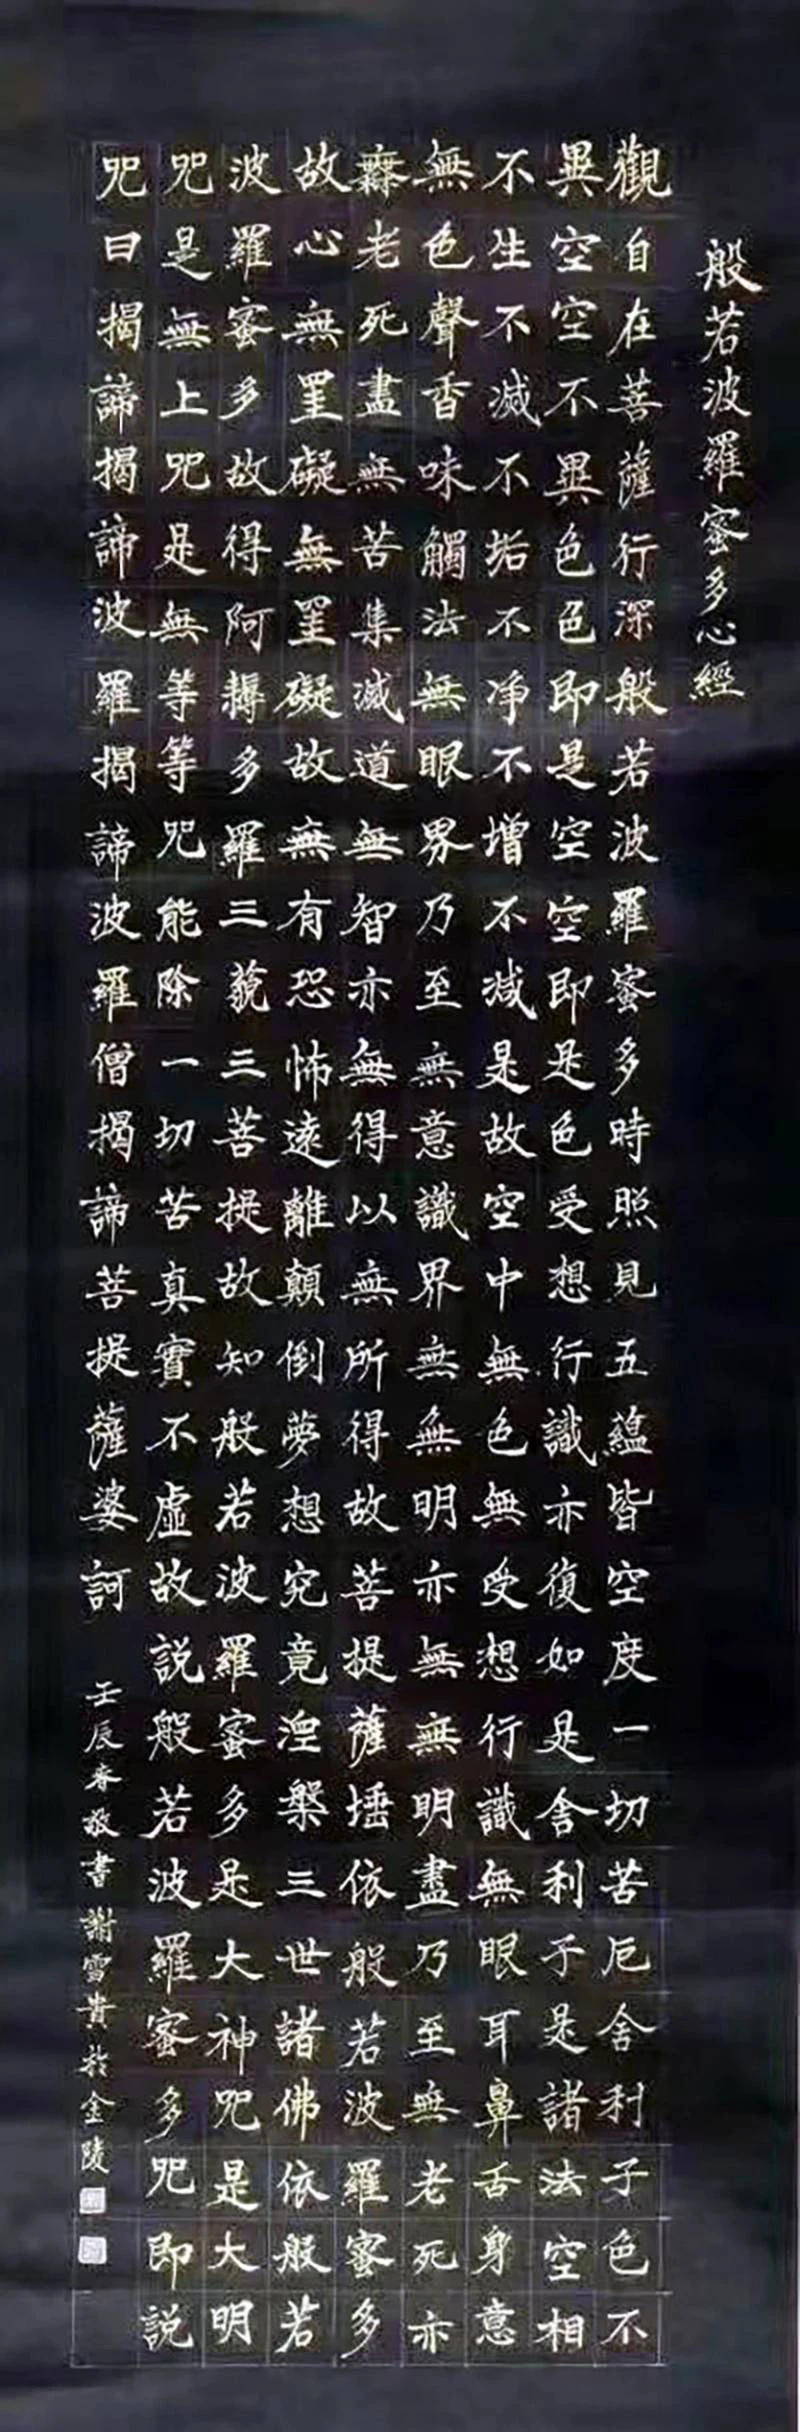 般若波羅蜜多心經
觀自在菩薩行深般若波羅蜜多時照見五蘊皆空度一切苦厄舍利子色不
異空空不異色色即是空空即是色受想行識亦復如是舍利子是諸法空相
不生不滅不垢不净不增不減是故空中無色無受想行識無眼耳鼻舌身意
無色聲香味觸法無眼界乃至無意識界無無明亦無無明盡乃至無老死亦
無老死盡無苦集滅道無智亦無得以無所得故菩提薩埵依般若波羅蜜多
故心無罣礙無罣礙故無有恐怖遠離顛倒夢想究竟涅槃三世諸佛依般若
波羅蜜多故得阿耨多羅三藐三菩提故知般若波羅蜜多是大神咒是大明
咒是無上咒是無等等咒能除一切苦真實不虛故説般若波羅蜜多咒即説
咒曰揭諦揭諦波羅揭諦波羅僧揭諦菩提薩婆訶 壬辰春敬書謝雪貴於金陵